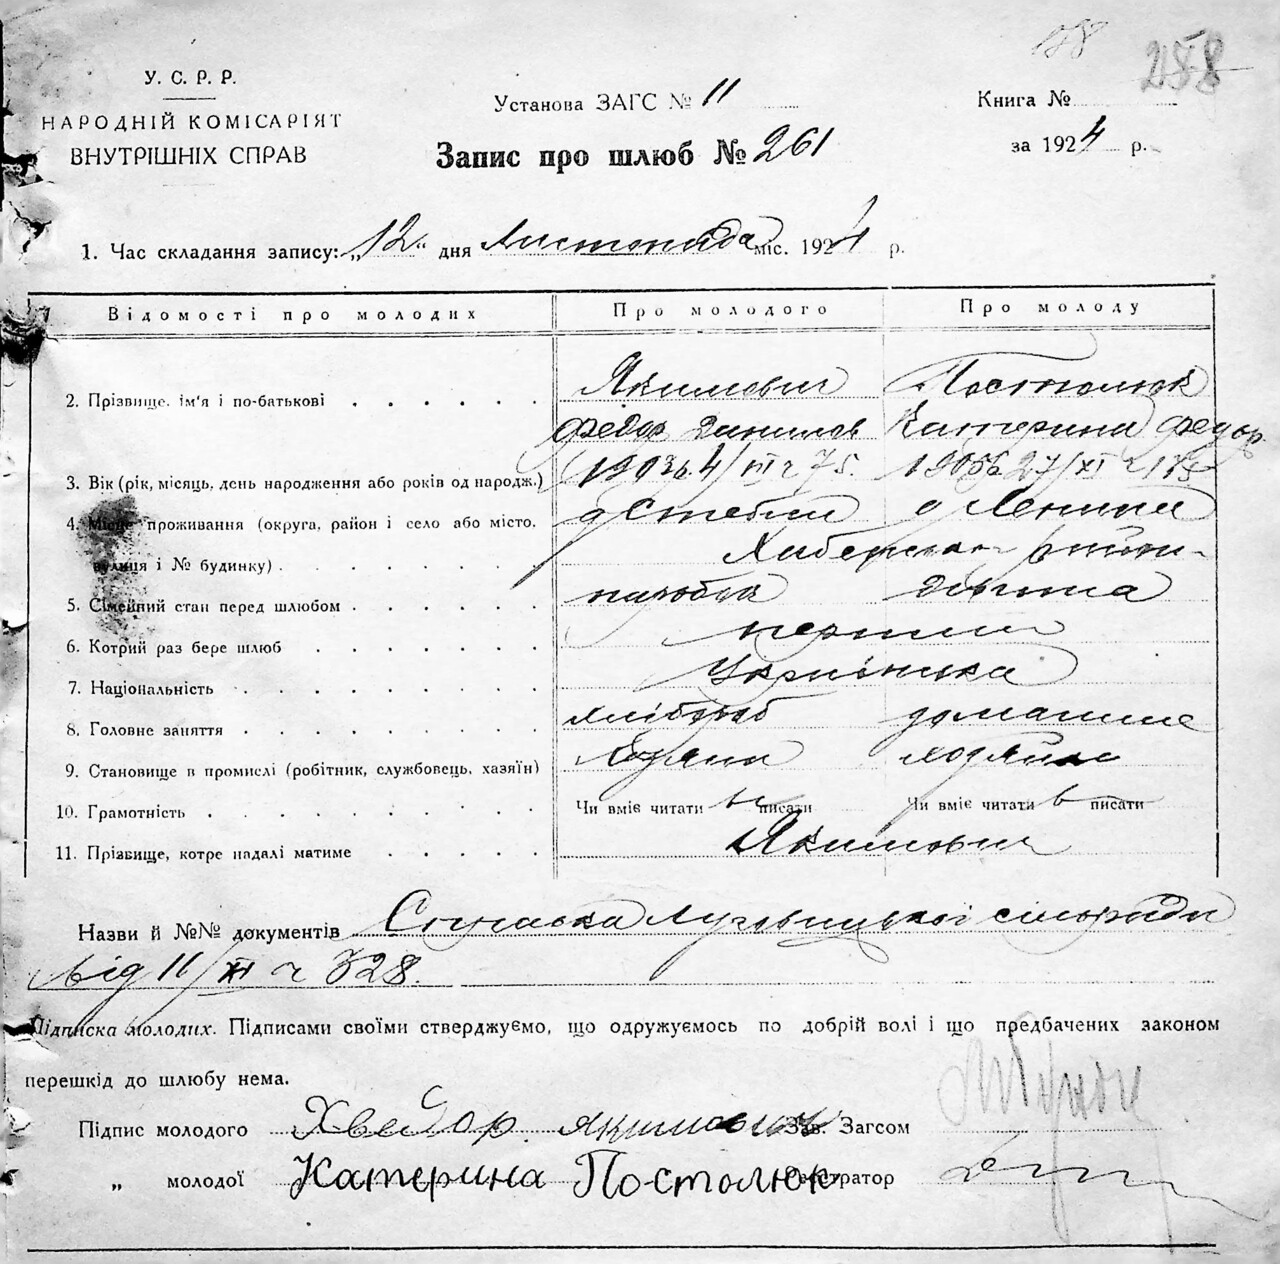 188
258
У. С. Р. Р.
НАРОДНІЙ КОМІСАРІЯТ
ВНУТРІШНІХ СПРАВ
Установа ЗАГС № 11
Запис про шлюб № 261
Книга №
за 1924 р.
1. Час складання запису: „12" дня Листопада міс. 1924 р.
Відомості про молодих Про молодого Про молоду
2. Прізвище, ім'я і по-батькові Якимович Постолюк
Федор Данилов Катерина Федор.
3. Вік (рік, місяць, день народження або років од народж.)
4. Місце проживання (округа, район і село або місто,
вулиця і № будинку)
5. Сімейний стан перед шлюбом парубок дівчина
6. Котрий раз бере шлюб перший
7. Національність Українська
8. Головне заняття хлібороб домашнє
9. Становище в промислі (робітник, службовець, хазяїн)
10. Грамотність Чи вміє читати писати Чи вміє читати писати
11. Прізвище, котре надалі матиме Якимович
Назви й №№ документів сільради
від 11/XI ч 328.
Підписка молодих. Підписами своїми стверджуємо, що одружуємось по добрій волі і що предбачених законом
перешкід до шлюбу нема.
Підпис молодого Хведор Якимович Зав. Загсом
„ молодої Катерина Постолюк Реєстратор